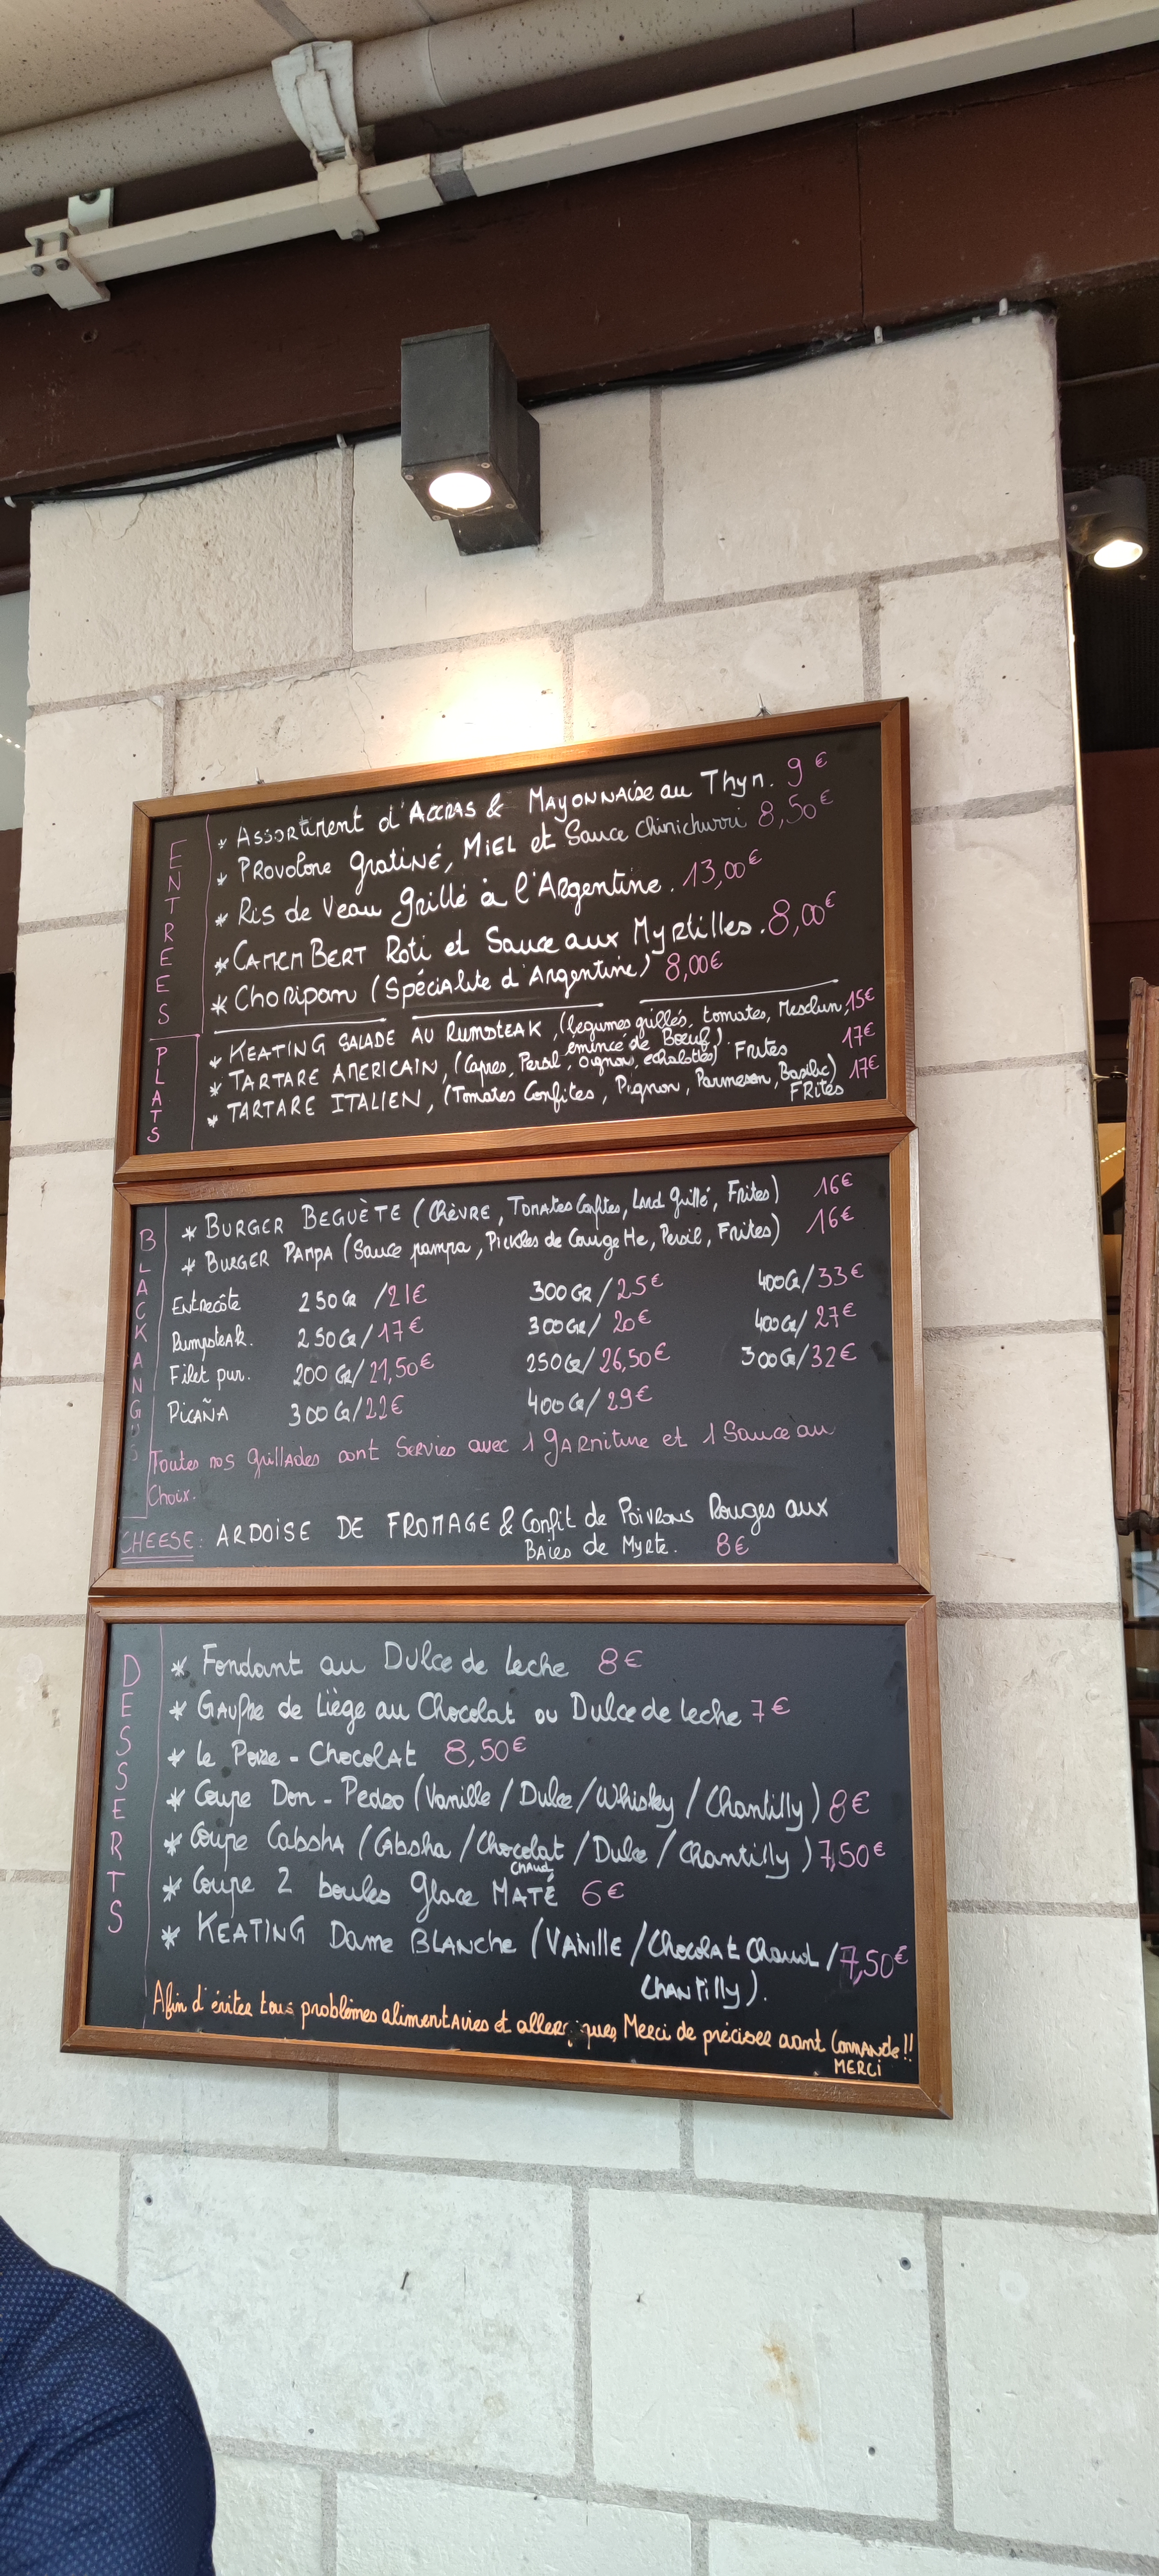 ENTREES
* Assortiment d'Accras & Mayonnaise au Thyn. 9 €
* Provolone gratiné, Miel et Sauce Chimichurri 8,50 €
* Ris de Veau Grillé à l'Argentine. 13,00 €
* CAMEMBERT Roti et Sauce aux Myrtilles. 8,00 €
* Choripan (Spécialite d'Argentine) 8,00€
PLATS
* KEATING SALADE AU RUMSTEAK, (légumes grillés, tomates, Mesclun, 15€
émincé de Boeuf).
* TARTARE AMERICAIN, (Capres, Persil, Oignon, echalottes) Frites 17€
* TARTARE ITALIEN, (Tomates Confites, Pignon, Parmesan, Basilic) 17€
FRites
BLACK ANGUS
* BURGER BEGUÈTE (CHÈVRE, Tomates Confites, Lard Grillé, Frites) 16€
* BURGER PAMPA (Sauce pampa, Pickles de Courgette, Persil, Frites) 16€
Entrecôte 250Gr /21€ 300GR/25€ 400Gr/33€
Rumpsteak. 250Gr/17€ 300Gr/ 20€ 400Gr/27€
Filet pur. 200 Gr/21,50€ 250Gr/26,50€ 300Gr/32€
PicAÑA 300 Gr/22€ 400Gr/29€
Toutes nos Grillades sont Servies avec 1 gARniture et 1 Sauce au
Choix.
CHEESE: ARDOISE DE FROMAGE & Confit de Poivrons Rouges aux
BAies de Myrte. 8€
DESSERTS
* Fondant au Dulce de Leche 8€
* Gaufre de Liège au Chocolat ou Dulce de Leche 7€
* Le Poire - Chocolat 8,50€
* Coupe Don - Pedro (Vanille / Dulce / Whisky / Chantilly) 8€
* Coupe Cabsha (Cabsha / Chocolat / Dulce / Chantilly) 7,50€
CHAUD
* Coupe 2 boules Glace MATÉ 6€
* KEATING Dame BLANche (VANille / Chocolat Chaud / 7,50€
CHANTilly).
Afin d'éviter tous problèmes alimentAires et allergiques, Merci de préciser avant CommANde!!
MERCi